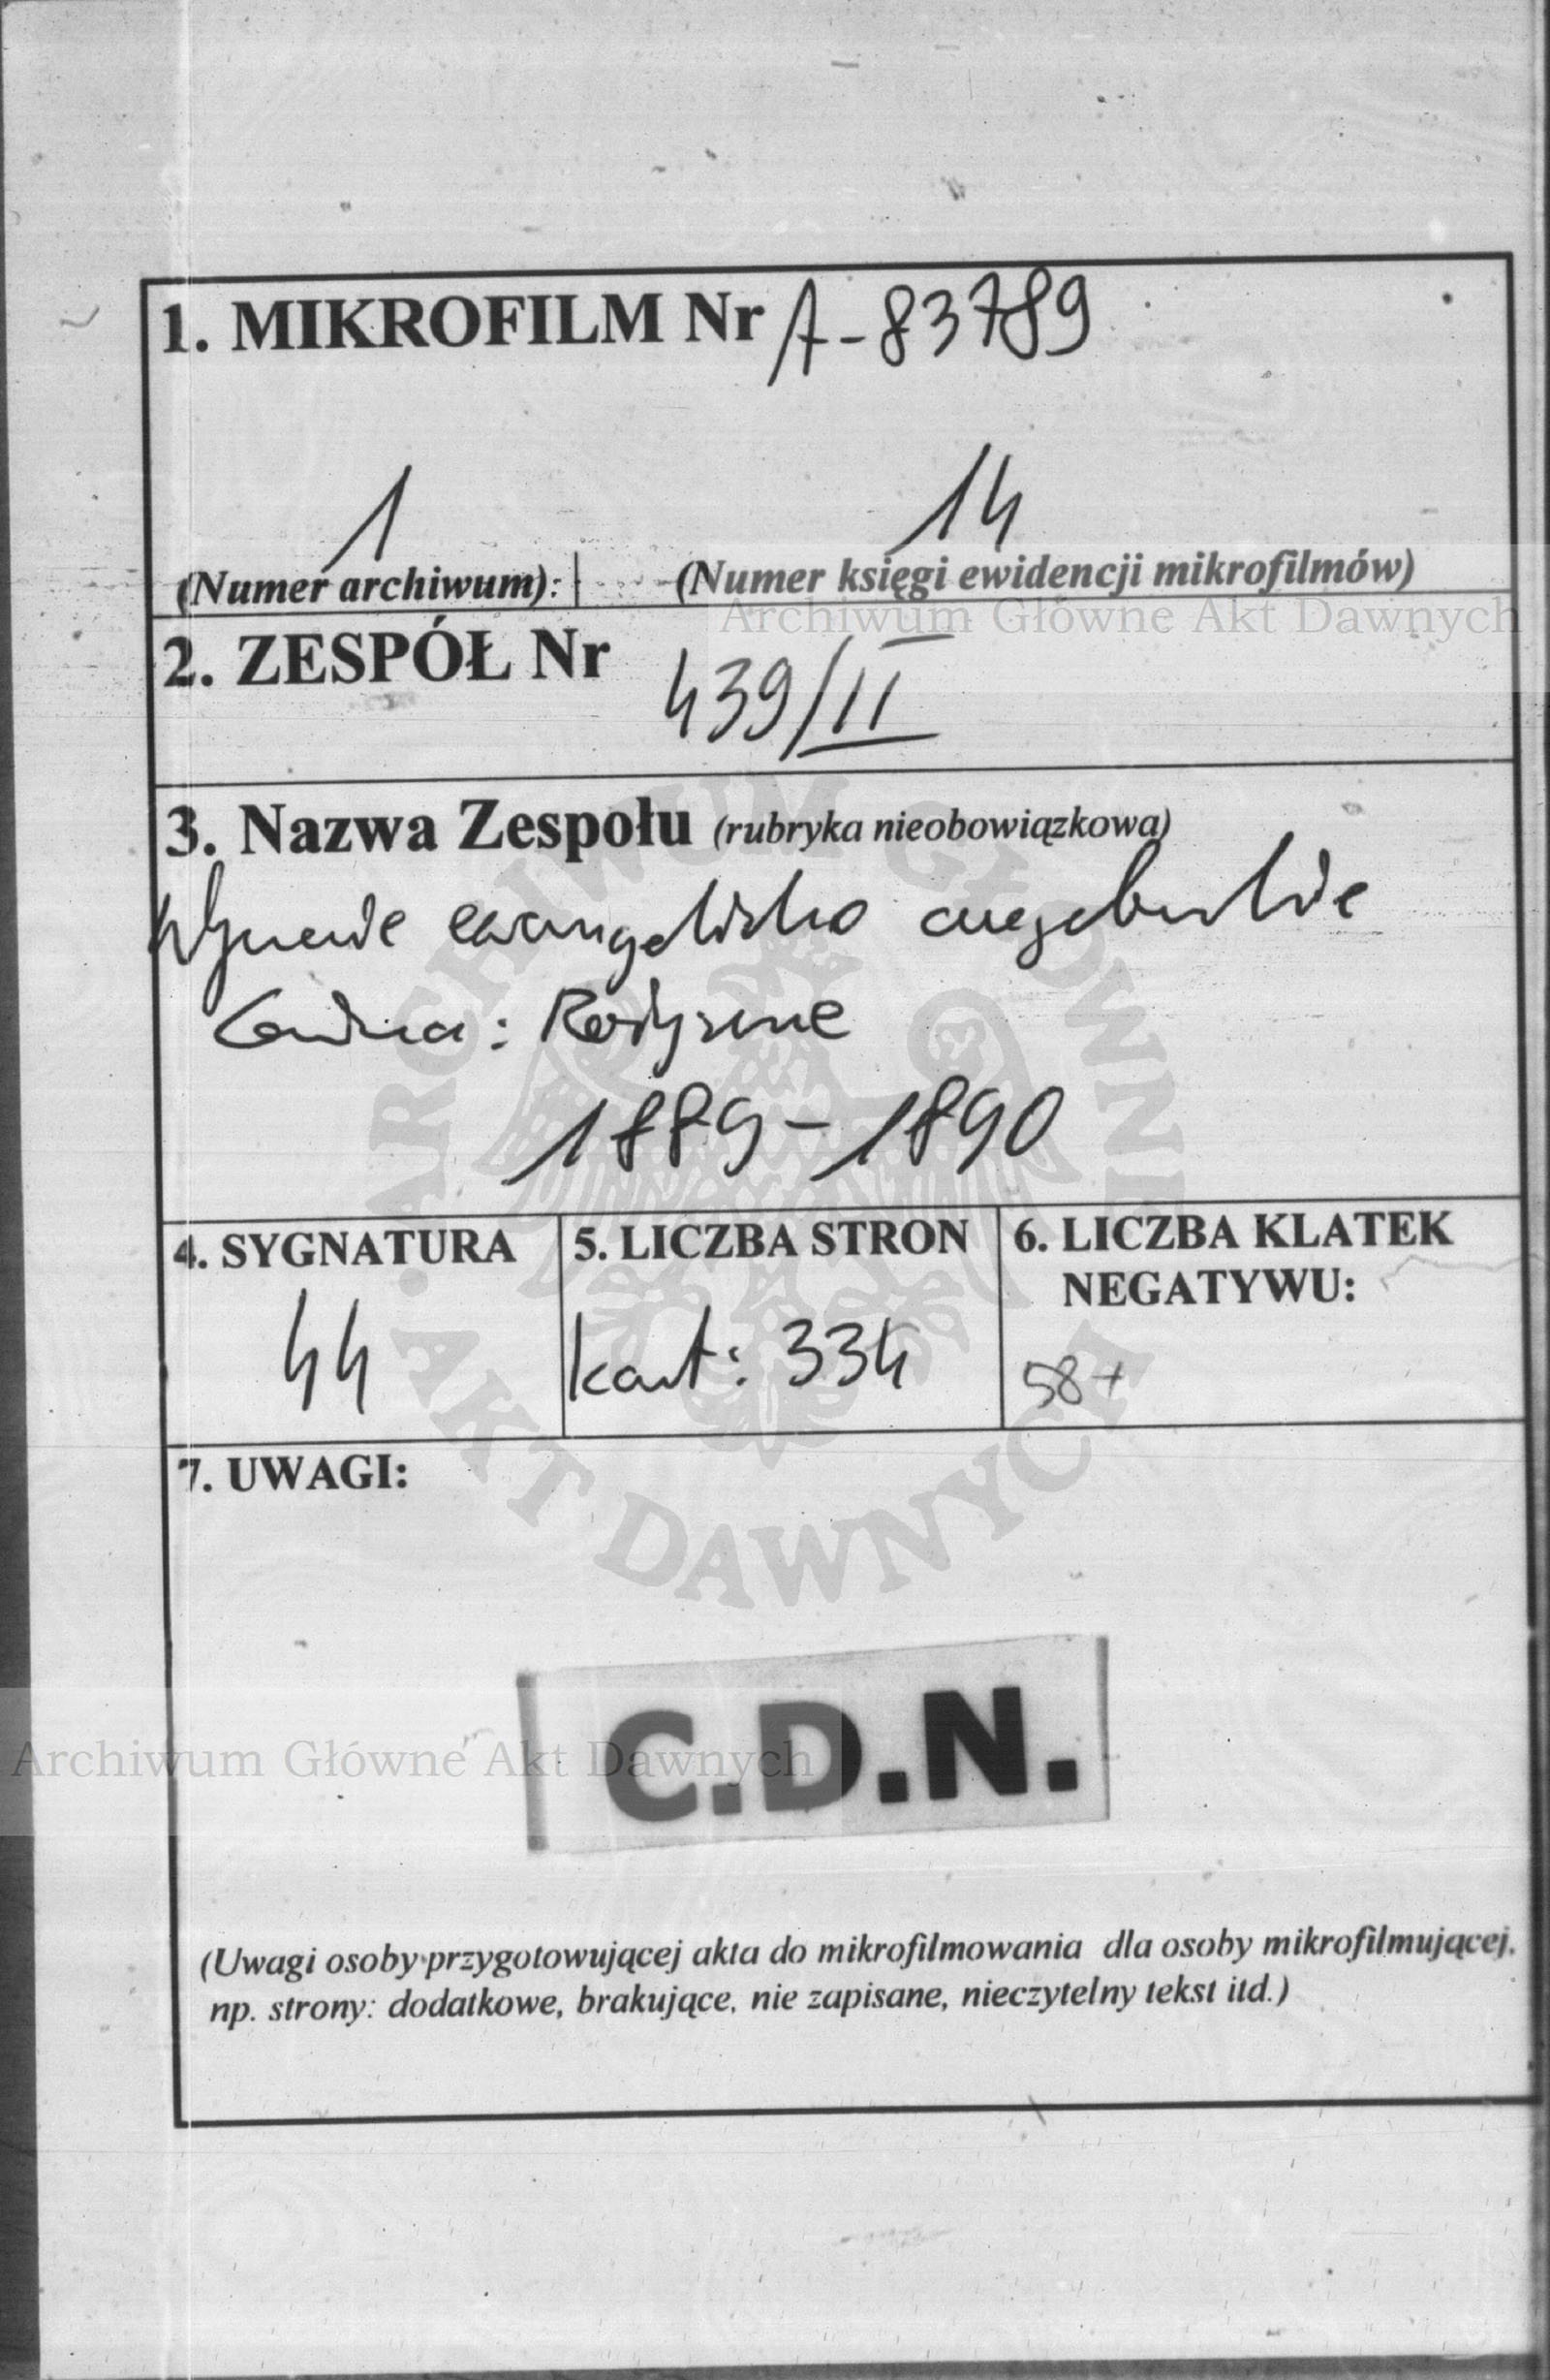 1. MIKROFILM Nr A-83789
1 14
(Numer archiwum): (Numer księgi ewidencji mikrofilmów)
Archiwum Główne Akt Dawnych
2. ZESPÓŁ Nr 439/II
3. Nazwa Zespołu (rubryka nieobowiązkowa)
Wyznanie ewangelicko augsburskie
Gmina: Rożyszcze
1889-1890
4. SYGNATURA 5. LICZBA STRON 6. LICZBA KLATEK
NEGATYWU:
44 kart: 334 58+
7. UWAGI:
ARCHIWUM GŁÓWNE
AKT DAWNYCH
C.D.N.
Archiwum Główne Akt Dawnych
(Uwagi osoby przygotowującej akta do mikrofilmowania dla osoby mikrofilmującej,
np. strony: dodatkowe, brakujące, nie zapisane, nieczytelny tekst itd.)